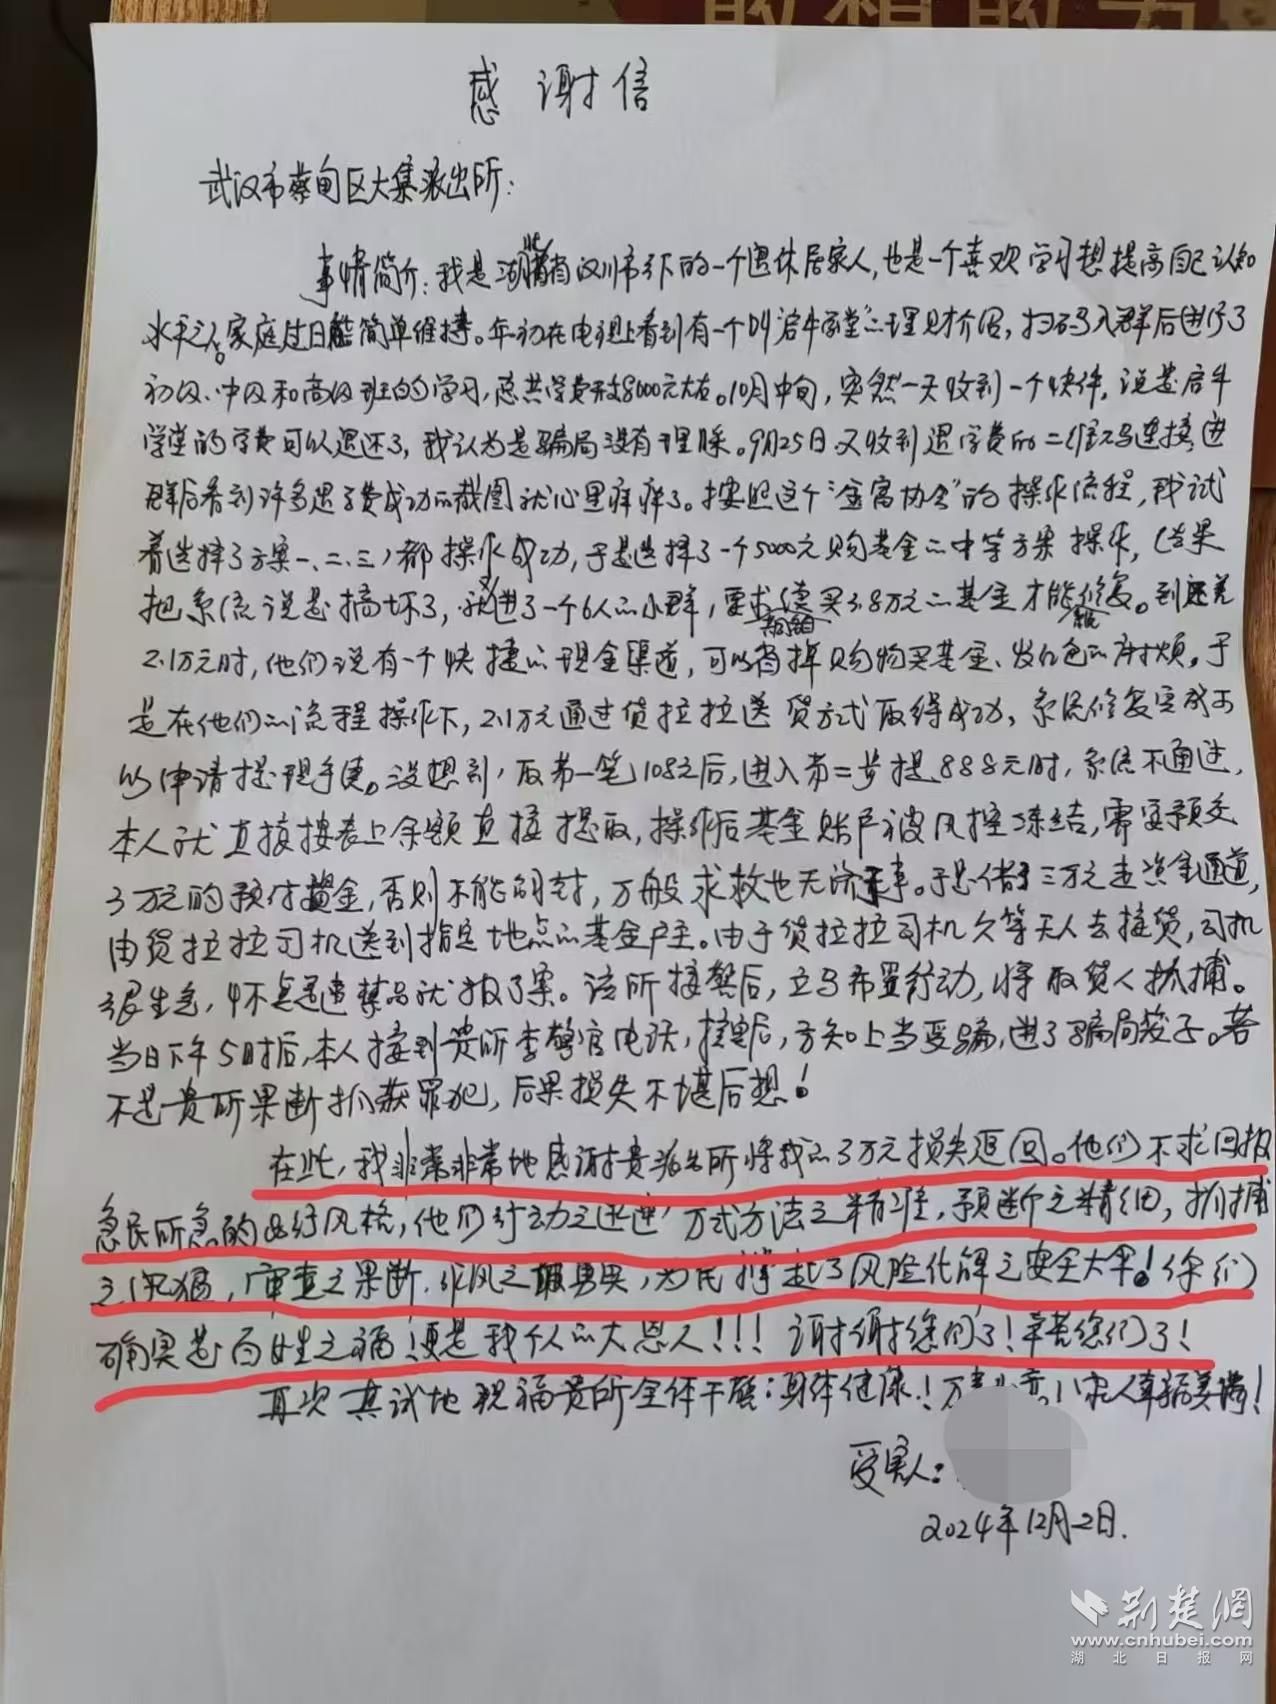 敢想敢为
感谢信
武汉市蔡甸区大集派出所：
事情简介：我是湖北省汉川市下的一个退休居家人，也是一个喜欢学习想提高自己认知
水平之人。家庭过日能简单维持。年初在电视上看到有一个叫启牛学堂的理财介绍，扫码入群后进行了
初级、中级和高级班的学习，总共学费花8000元左右。10月中旬，突然一天收到一个快件，说是启牛
学堂的学费可以退还了，我认为是骗局没有理睬。9月25日又收到退学费的二维码连接，进
群后看到许多退学费成功的截图就心里痒痒了。按照这个“金富协会”的操作流程，我试
着选择了方案一、二、三，都操作成功，于是选择了一个5000元购基金的中等方案操作，结果
把系统说是搞坏了，又进了一个6人的小群，要求买3.8万元的基金才能修复。到还差
2.1万元时，他们说有一个快捷的现金渠道，可以省掉购物买基金、发红包的麻烦。于
是在他们的流程操作下，2.1万元通过货拉拉送货方式取得成功，系统修复完成可
以申请提现手续。没想到，取第一笔108元后，进入第二步提888元时，系统不通过，
本人就直接按表上余额直接提取，操作后基金账户被风控冻结，需要预交
3万元的预付金，否则不能解封，万般求救也无济于事。于是借了三万元走资金通道，
由货拉拉司机送到指定地点的基金户主。由于货拉拉司机久等无人去接货，司机
很生急，怀疑是违禁品就报了案。该所接警后，立马布置行动，将取货人抓捕。
当日下午5时后，本人接到贵所李警官电话，接電后，方知上当受骗，进了骗局笼子。若
不是贵所果断抓获罪犯，后果损失不堪后想！
在此，我非常非常地感谢贵派出所将我的3万元损失返回。他们不求回报
急民所急的品行风格，他们行动之迅速，方式方法之精准，预断之精细，抓捕
之快猛，审查之果断，作风之勇，为民撑起了风险化解之安全大伞！你们
确实是百姓之福！更是我个人的大恩人！！！谢谢您们了！辛苦您们了！
再次真诚地祝福贵所全体干警：身体健康！万事如意！家人幸福美满！
受害人：
2024年12月2日.
荆楚网
www.cnhubei.com
湖北日报网